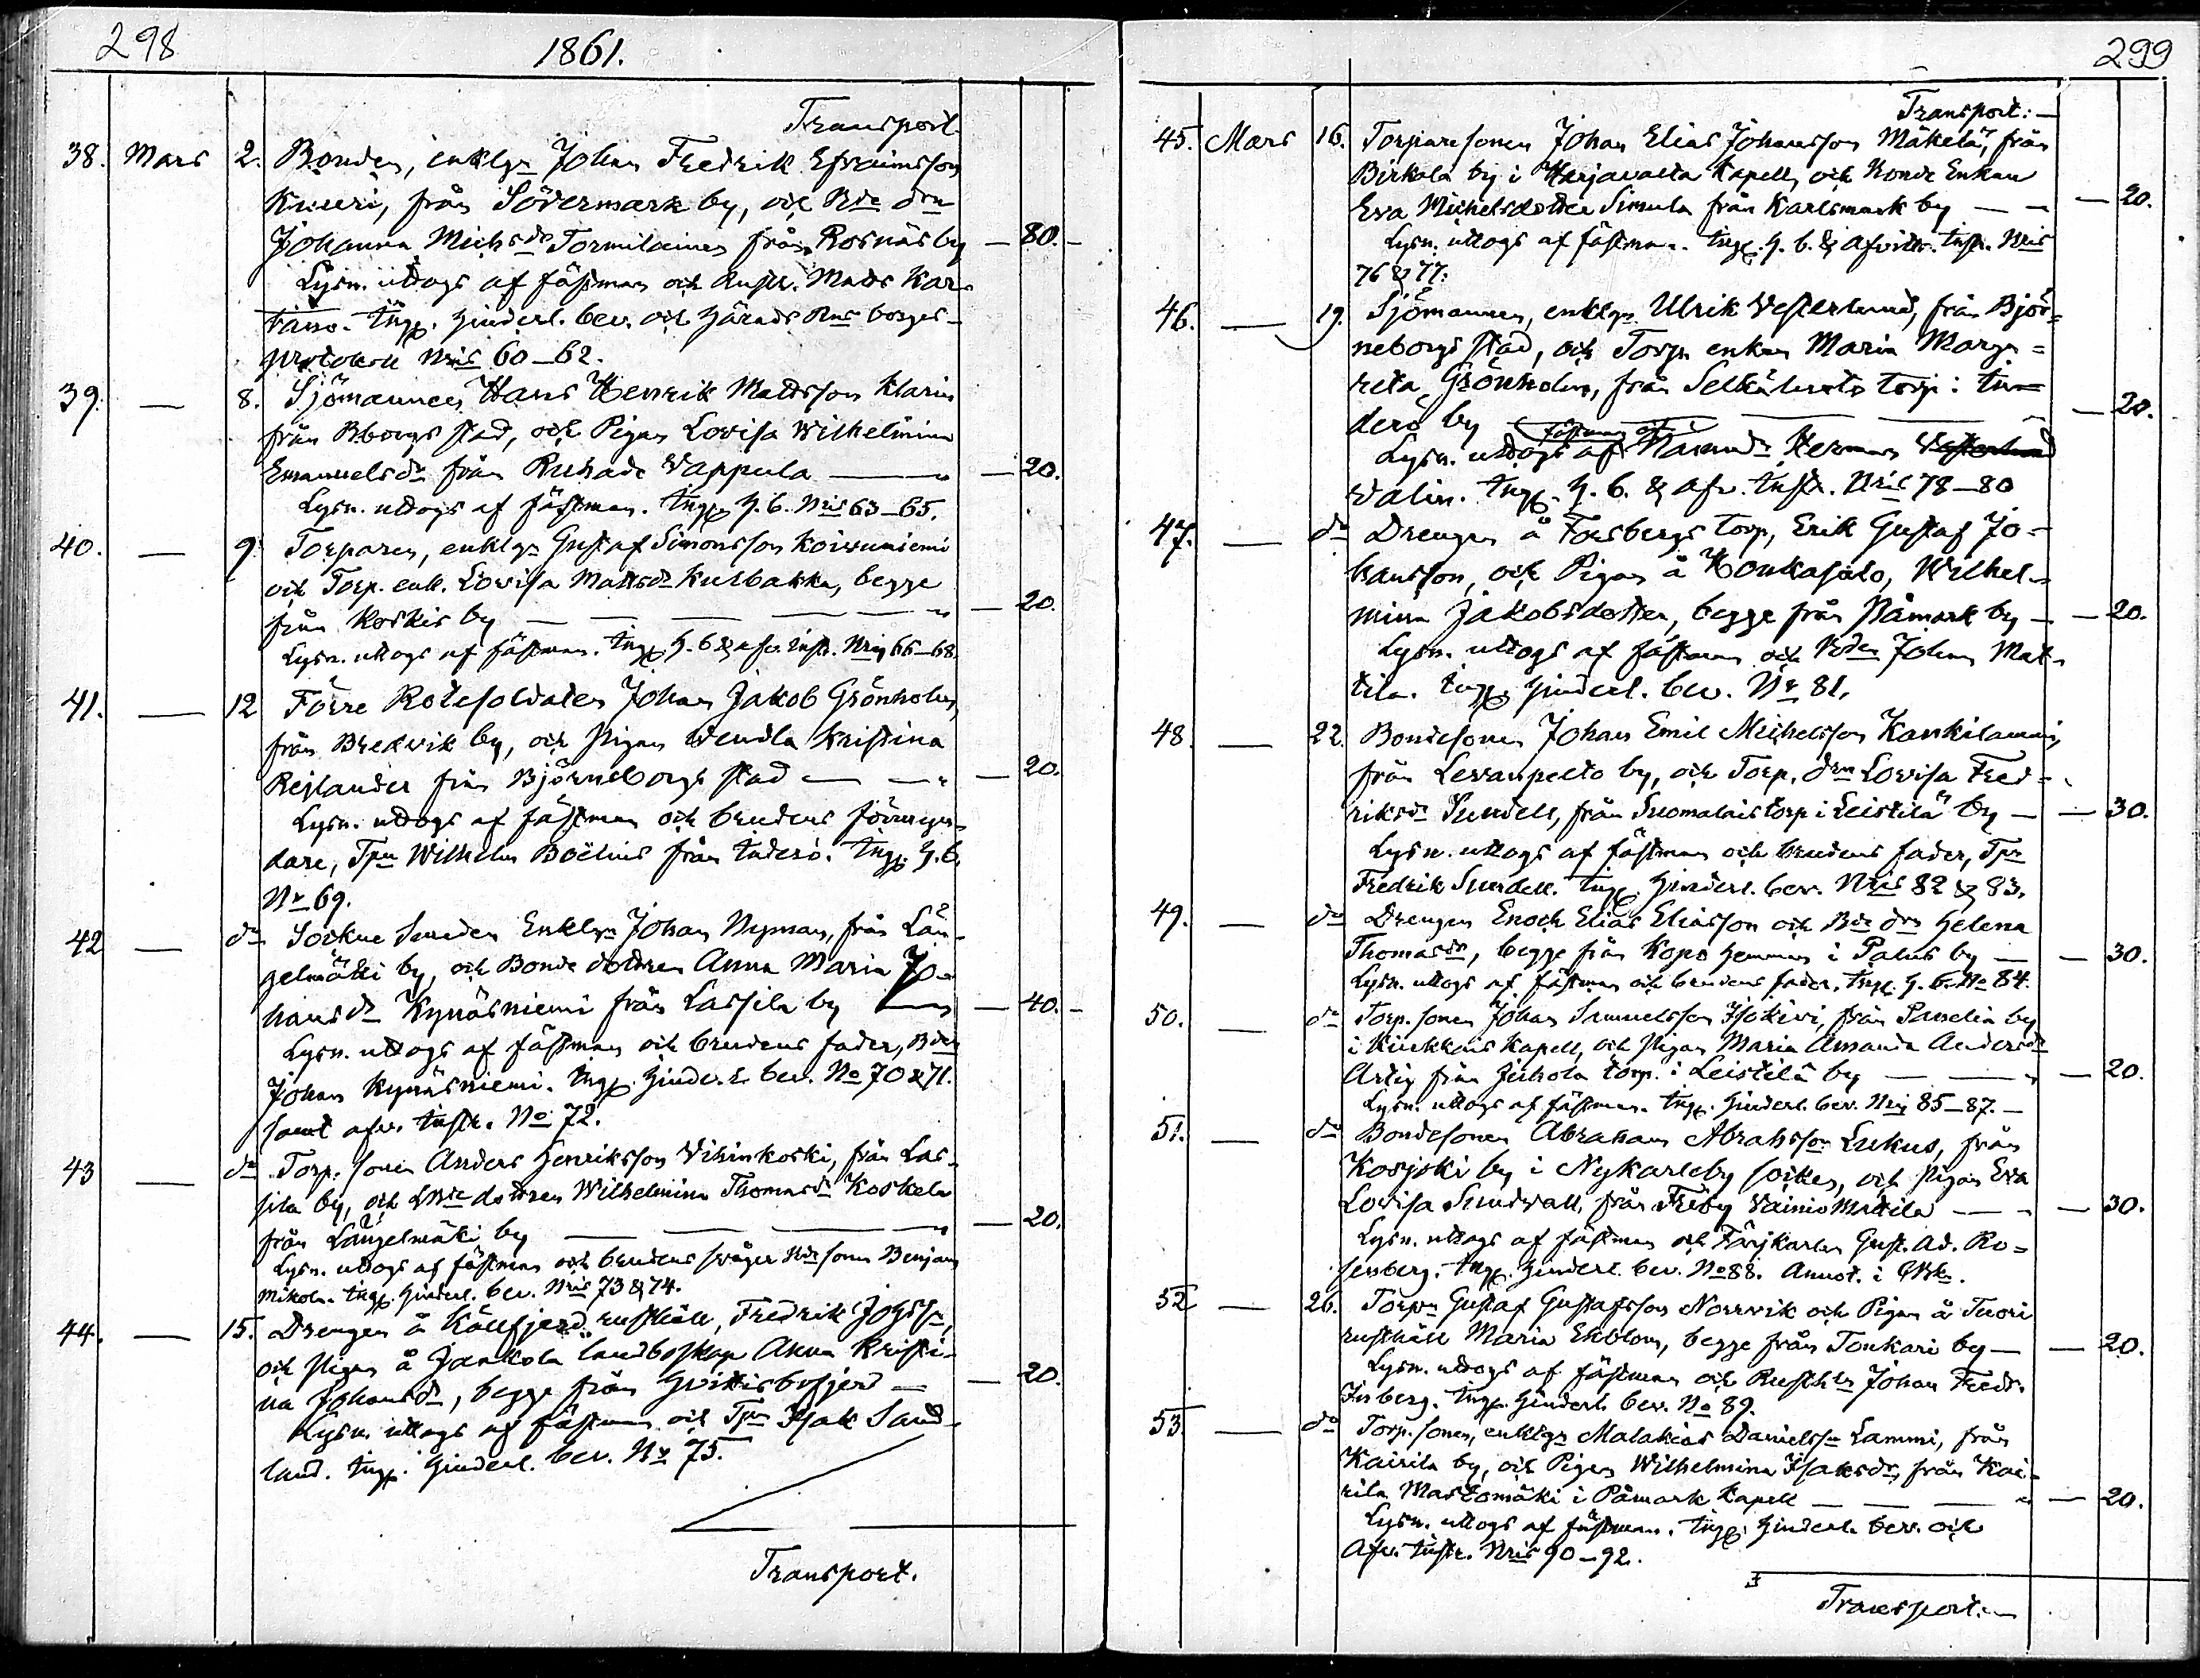 298
1861.
Transport.
38. Mars 2. Bonden, enklgn Johan Fredrik Efraimsson
Kuuri, från Södermark by, och Bde drn
Johanna Michsdr Tormilainen från Rosnäs by — 80. —
Lysn. uttogs af fästman och Mats Kar-
Ingg. hinderl. bev. och Härads Rns borges-
protokoll Nris 60—62.
39. — 8. Sjömannen Hans Henrik Mattsson Klarin
från Bborgs stad, och Pigan Lovisa Wilhelmina
Emanuelsdr från Ruhade Vappula — — 20.
Lysn. uttogs af fästman. Ingg. h. b. Nris 63—65.
40. — 9. Torparen, enklgn Gustaf Simonsson Koivuniemi
och Torp. enk. Lovisa Mattsdr Kulbakka, begge
från Koskis by — — — — 20.
Lysn. uttogs af fästman. Ingg. h. b & afv. instr. Nris 66—68.
41. — 12 Förre Rotesoldaten Johan Jakob Grönholm,
från Bredvik by, och Pigan Wendla Kristina
Rejlander från Björneborgs stad — — — 20.
Lysn. uttogs af fästman och brudens förmyn-
dare, Tpn Wilhelm Boëlius från Inderö. Ingg. h. b.
Nr 69.
42 — do Sockne Smeden Enklgn Johan Nyman, från Län-
gelmäki by, och Bonde dottren Anna Maria Jo-
hansdr Kynäsniemi från Lassila by — — 40. —
Lysn. uttogs af fästman och brudens fader, Bden
Johan Kynäsniemi. Ingg. hinderl. bev. No 70 & 71.
samt afv. instr. No 72.
43 — do Torp. sonen Anders Henriksson Vihinkoski, från Las-
sila by, och dottren Wilhelmina Thomasdr Koskela
från Längelmäki by — — — — 20.
Lysn. uttogs af fästman och brudens svåger Bde sonen Benjam
Mikola. Ingg. hinderl. bev. Nris 73 & 74.
44. — 15. Drengen å Källfjerd rusthåll, Fredrik Johssn,
och Pigan å Jankola landboskap Anna Kristi-
na Johansdr, begge från Hvittisbofjerd — — 20.
Lysn. uttogs af fästman och Tpn Isak Sand-
land. Ingg. hinderl. bev. Nr 75.
Transport.
299
Transport: —
45. Mars 16. Torparesonen Johan Elias Johansson Mäkelä, från
Birkala by i Harjavalta Kapell, och Bonde Enkan
Eva Michelsdotter Simula från Karlsmark by — — — 20.
Lysn. uttogs af fästman. Ingg. h. b. & afvittr. instr. Nris
76 & 77.
46. — 19. Sjömannen, enklgn Ulrik Vesterlund, från Björ=
neborgs stad, och Torp. enkan Maria Marga=
reta Grönholm, från torp i In-
derö by — — — — 20.
fästman af
Lysn. uttogs af Nämnde Herman Vesterlund
Valin. Ingg. h. b. & afv. instr. Nris 78—80
47. — do Drengen å Forsbergs torp, Erik Gustaf Jo-
hansson, och Pigan å Honkasalo, Wilhel-
mina Jakobsdotter, begge från Påmark by — — 20.
Lysn. uttogs af fästman och Bden Johan Mat-
tila. Ingg. hinderl. bev. Nr 81.
48. — 22. Bondesonen Johan Emil Michelsson Kankilamni,
från Levanpelto by, och Torp. drn Lovisa Fred=
riksdr Sundell, från Suomalais torp i Leistilä by — — 30.
Lysn. uttogs af fästman och brudens fader, Tpn
Fredrik Sundell. Ingg. hinderl. bev. Nris 82 & 83.
49. — do Drengen Enoch Elias Eliasson och Bde drn Helena
Thomasdr, begge från Kopo hemman i Palus by — — 30.
Lysn. uttogs af fästman och brudens fader. Ingg. h. b. No 84.
50. — do Torp. sonen Johan Samuelsson Isokivi, från Panelia by
i Kiukkais Kapell, och Pigan Maria Amanda Andersdr
Artig från Juhola torp i Leistilä by — — — 20.
Lysn. uttogs af fästman. Ingg. hinderl. bev. Nris 85—87. —
51. — do Bondesonen Abraham Abrahsson Lukus, från
Kovjoki by i Nykarleby socken, och Pigan Eva
Lovisa Sundvall, från Friby Vainio Mattila — — — 30.
Lysn. uttogs af fästman och Färjkarlen Gust. Ad. Ro=
senberg. Ingg. hinderl. bev. No 88. Annot. i
52 — 26. Torpn Gustaf Gustafsson Norrvik och Pigan å Tuori
rusthåll Maria Ekblom, begge från Tonkari by — — 20.
Lysn. uttogs af fästman och Rusthln Johan Fredr.
Isberg. Ingg. hinderl. bev. No 89.
53 — do Torp. sonen, enklgn Malakias Danielssn Lammi, från
Kairila by, och Pigan Wilhelmina Isaksdr, från Kai-
rila Mastomäki i Påmark Kapell — — — — 20.
Lysn. uttogs af fästman. Ingg. hinderl. bev. och
Afv. instr. Nris 90—92.
Transport. —